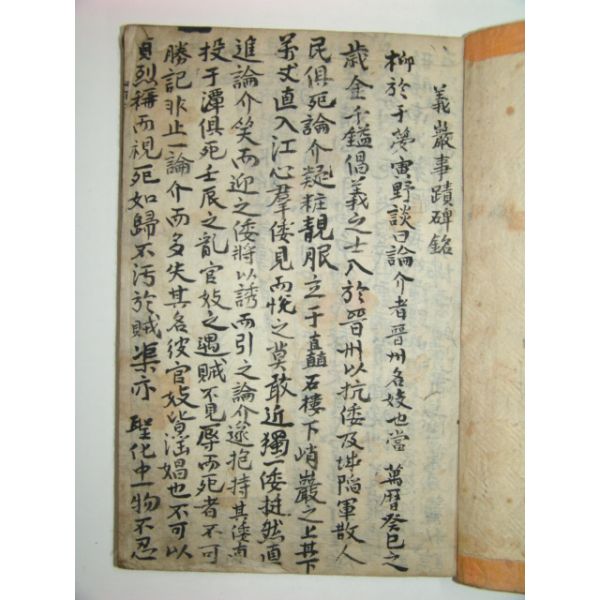 義巖事蹟碑銘
柳於于夢寅野談曰論介者晉州名妓也當 萬曆癸巳之
歲金千鎰倡義之士入於晉州以抗倭及城陷軍散人
民俱死論介凝粧靚服立于矗石樓下峭巖之上其下
万丈直入江心羣倭見而悅之莫敢近獨一倭挺然直
進論介笑而迎之倭將以誘而引之論介遂抱持其倭直
投于潭俱死壬辰之亂官妓之遇賊不見辱而死者不可
勝記非止一論介而多失其名彼官妓皆淫娼也不可以
貞烈稱而視死如歸不汚於賊渠亦 聖化中一物不忍